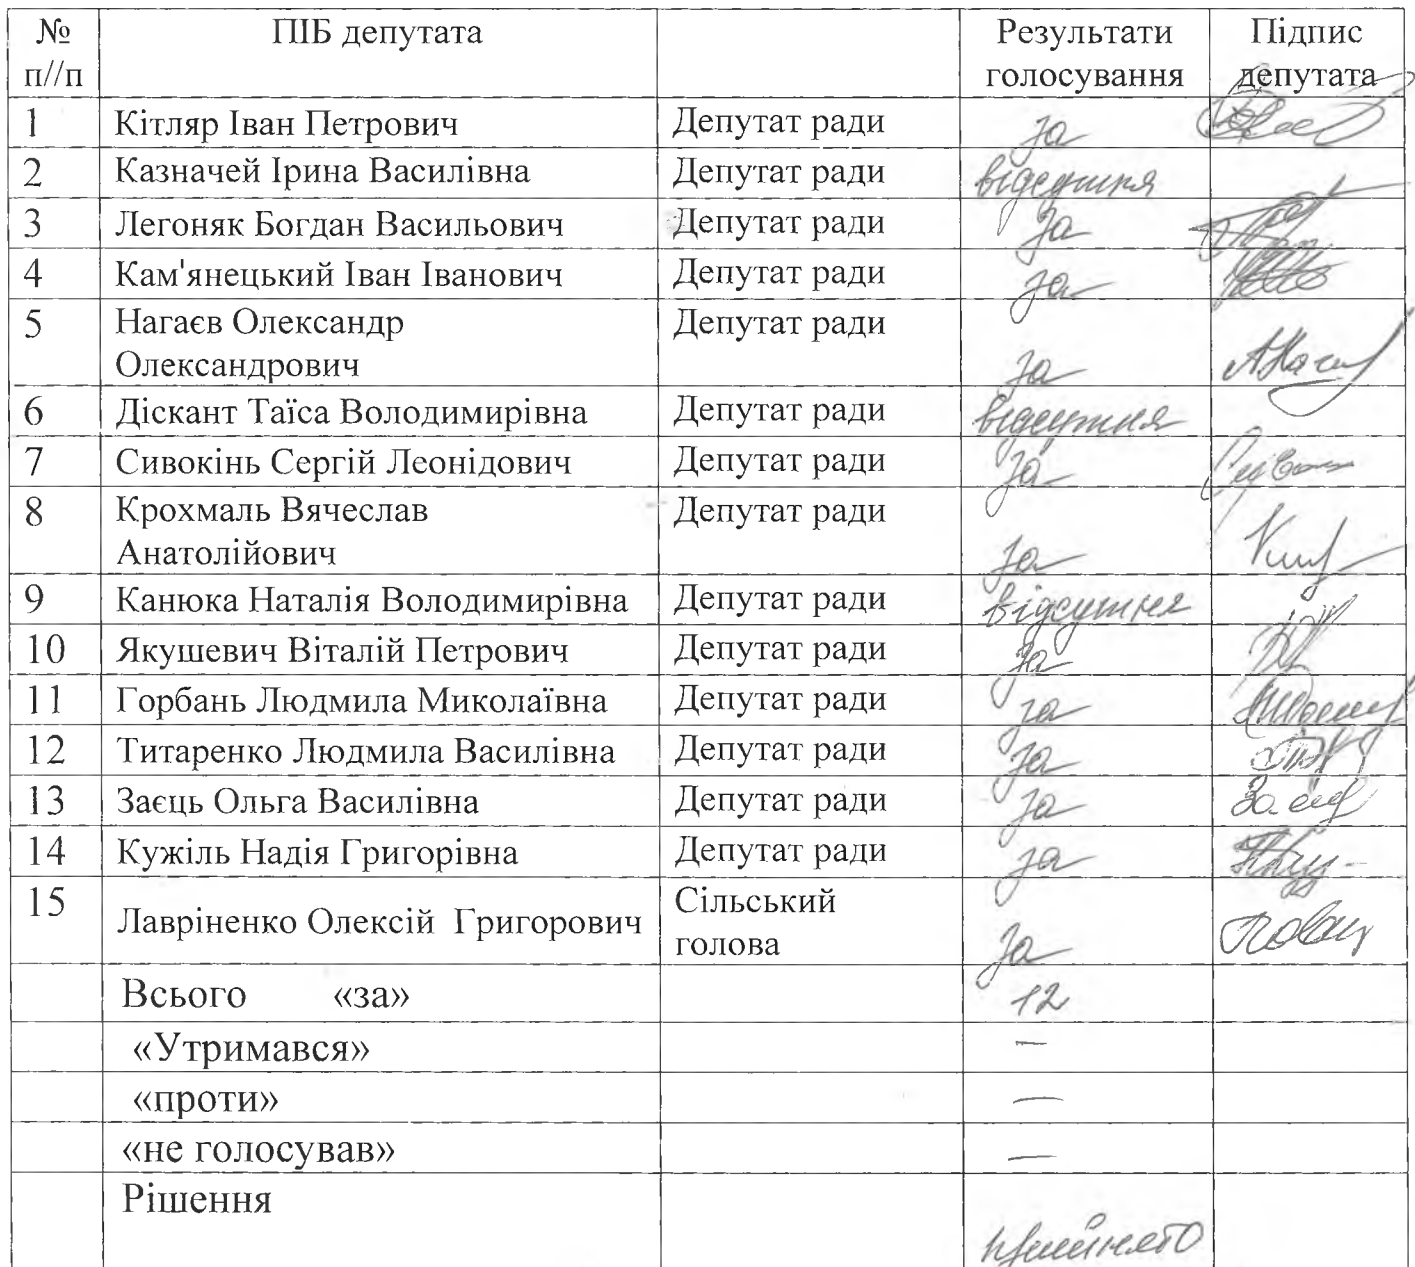 № ПІБ депутата Результати Підпис
п//п голосування депутата
1 Кітляр Іван Петрович Депутат ради за
2 Казначей Ірина Василівна Депутат ради відсутня
3 Легоняк Богдан Васильович Депутат ради за
4 Кам'янецький Іван Іванович Депутат ради за
5 Нагаєв Олександр Депутат ради
Олександрович за
6 Діскант Таїса Володимирівна Депутат ради відсутня
7 Сивокінь Сергій Леонідович Депутат ради за
8 Крохмаль Вячеслав Депутат ради
Анатолійович за
9 Канюка Наталія Володимирівна Депутат ради відсутня
10 Якушевич Віталій Петрович Депутат ради за
11 Горбань Людмила Миколаївна Депутат ради за
12 Титаренко Людмила Василівна Депутат ради за
13 Заєць Ольга Василівна Депутат ради за
14 Кужіль Надія Григорівна Депутат ради за
15 Лавріненко Олексій Григорович Сільський
голова за
Всього «за» 12
«Утримався» —
«проти» —
«не голосував» —
Рішення
прийнято